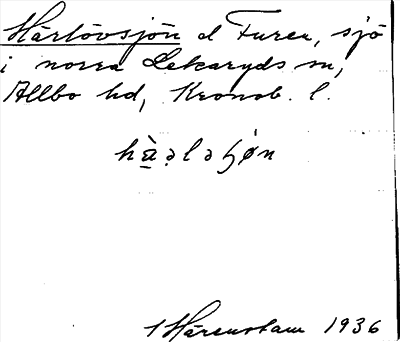 Härlövsjön el Furen, sjö
i norra Lekaryds sn,
Allbo hd, Kronob. l.
hà̱ə̣ləɧøn
Härenstam 1936